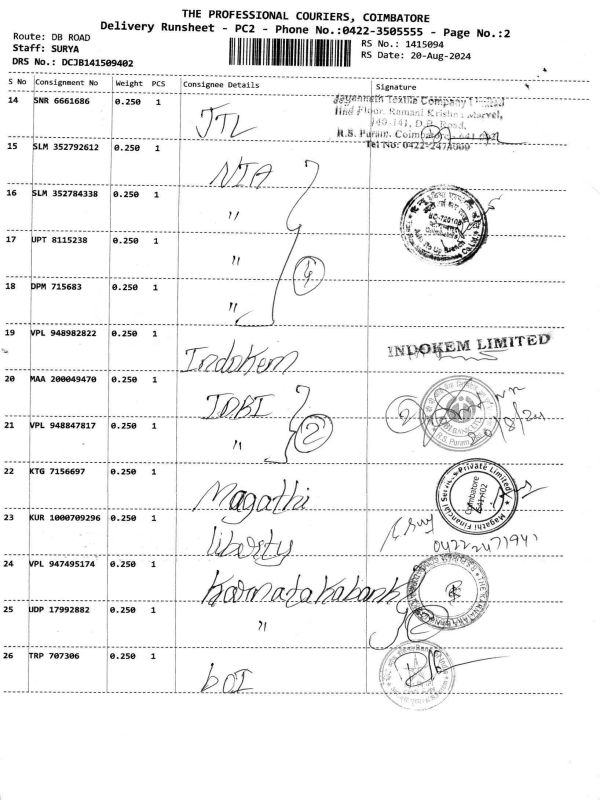 THE PROFESSIONAL COURIERS, COIMBATORE
Delivery Runsheet - PC2 - Phone No.:0422-3505555 - Page No.:2
Route: DB ROAD
RS No.: 1415094
Staff: SURYA
RS Date: 20-Aug-2024
DRS No.: DCJB141509402
S No Consignment No Weight PCS Consignee Details Signature
14 SNR 6661686 0.250 1 JTL
Jayannath Textile Company Limited
IInd Floor, Ramani Krishna Marvel,
140-141, D.B. Road,
R.S. Puram, Coimbatore
Tel No: 0422-2474000
15 SLM 352792612 0.250 1 NIA
16 SLM 352784338 0.250 1 "
17 UPT 8115238 0.250 1 "
4
18 DPM 715683 0.250 1 "
19 VPL 948982822 0.250 1 Indokem INDOKEM LIMITED
20 MAA 200049470 0.250 1 IDBI
2
20/8/24
R.S. Puram
21 VPL 948847817 0.250 1 "
2
22 KTG 7156697 0.250 1 Magathi
Magathi Financial Services Private Limited
Coimbatore
23 KUR 1000709296 0.250 1 liberty
0422 2471941
24 VPL 947495174 0.250 1 Karnataka bank
25 UDP 17992882 0.250 1 "
26 TRP 707306 0.250 1 boI